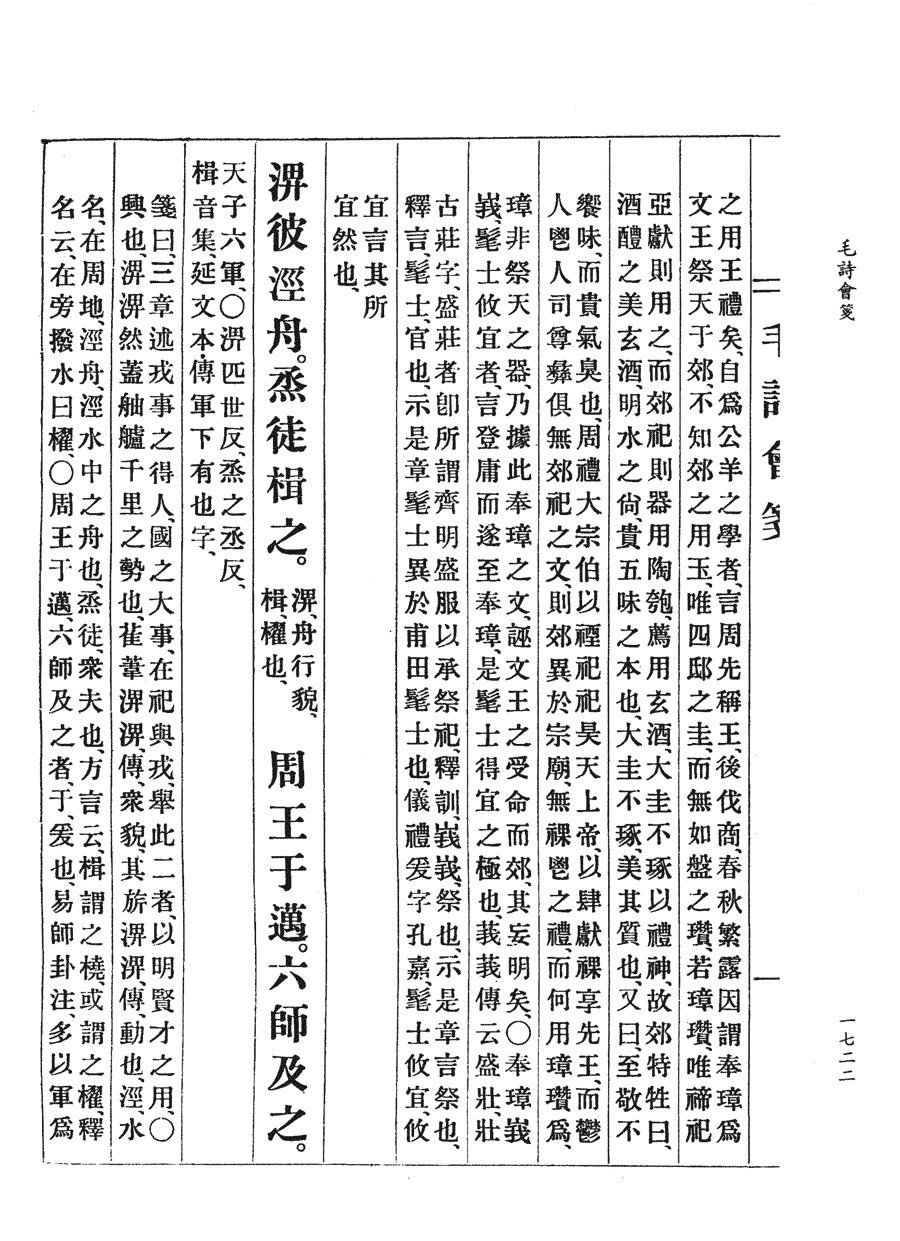 毛詩會箋
一七二二
毛詩會箋
之用王禮矣、自爲公羊之學者、言周先稱王、後伐商、春秋繁露因謂奉璋爲
文王祭天于郊、不知郊之用玉、唯四邸之圭、而無如盤之瓚、若璋瓚、唯禘祀
亞獻則用之、而郊祀則器用陶匏、薦用玄酒、大圭不琢以禮神、故郊特牲曰、
酒醴之美玄酒、明水之尙、貴五味之本也、大圭不琢、美其質也、又曰、至敬不
饗味、而貴氣臭也、周禮大宗伯以禋祀祀昊天上帝、以肆獻祼享先王、而鬱
人鬯人司尊彝俱無郊祀之文、則郊異於宗廟、無祼鬯之禮、而何用璋瓚爲、
璋非祭天之器、乃據此奉璋之文、誣文王之受命而郊、其妄明矣、〇奉璋峩
峩、髦士攸宜者、言登庸而遂至奉璋、是髦士得宜之極也、莪莪傳云盛壯、壯
古莊字、盛莊者卽所謂齊明盛服以承祭祀、釋訓、峩峩、祭也、示是章言祭也、
釋言、髦士、官也、示是章髦士異於甫田髦士也、儀禮爰字孔嘉、髦士攸宜、攸
宜言其所
宜然也、
淠彼涇舟。烝徒楫之。
淠、舟行貌、
楫、櫂也、
周王于邁。六師及之。
天子六軍、〇淠匹世反、烝之丞反、
楫音集、延文本、傳軍下有也字、
箋曰、三章述戎事之得人、國之大事、在祀與戎、舉此二者、以明賢才之用、〇
興也、淠淠然蓋舳艫千里之勢也、萑葦淠淠、傳、衆貌、其旂淠淠、傳、動也、涇、水
名、在周地、涇舟、涇水中之舟也、烝徒、衆夫也、方言云、楫謂之橈、或謂之櫂、釋
名云、在旁撥水曰櫂、〇周王于邁、六師及之者、于、爰也、易師卦注、多以軍爲